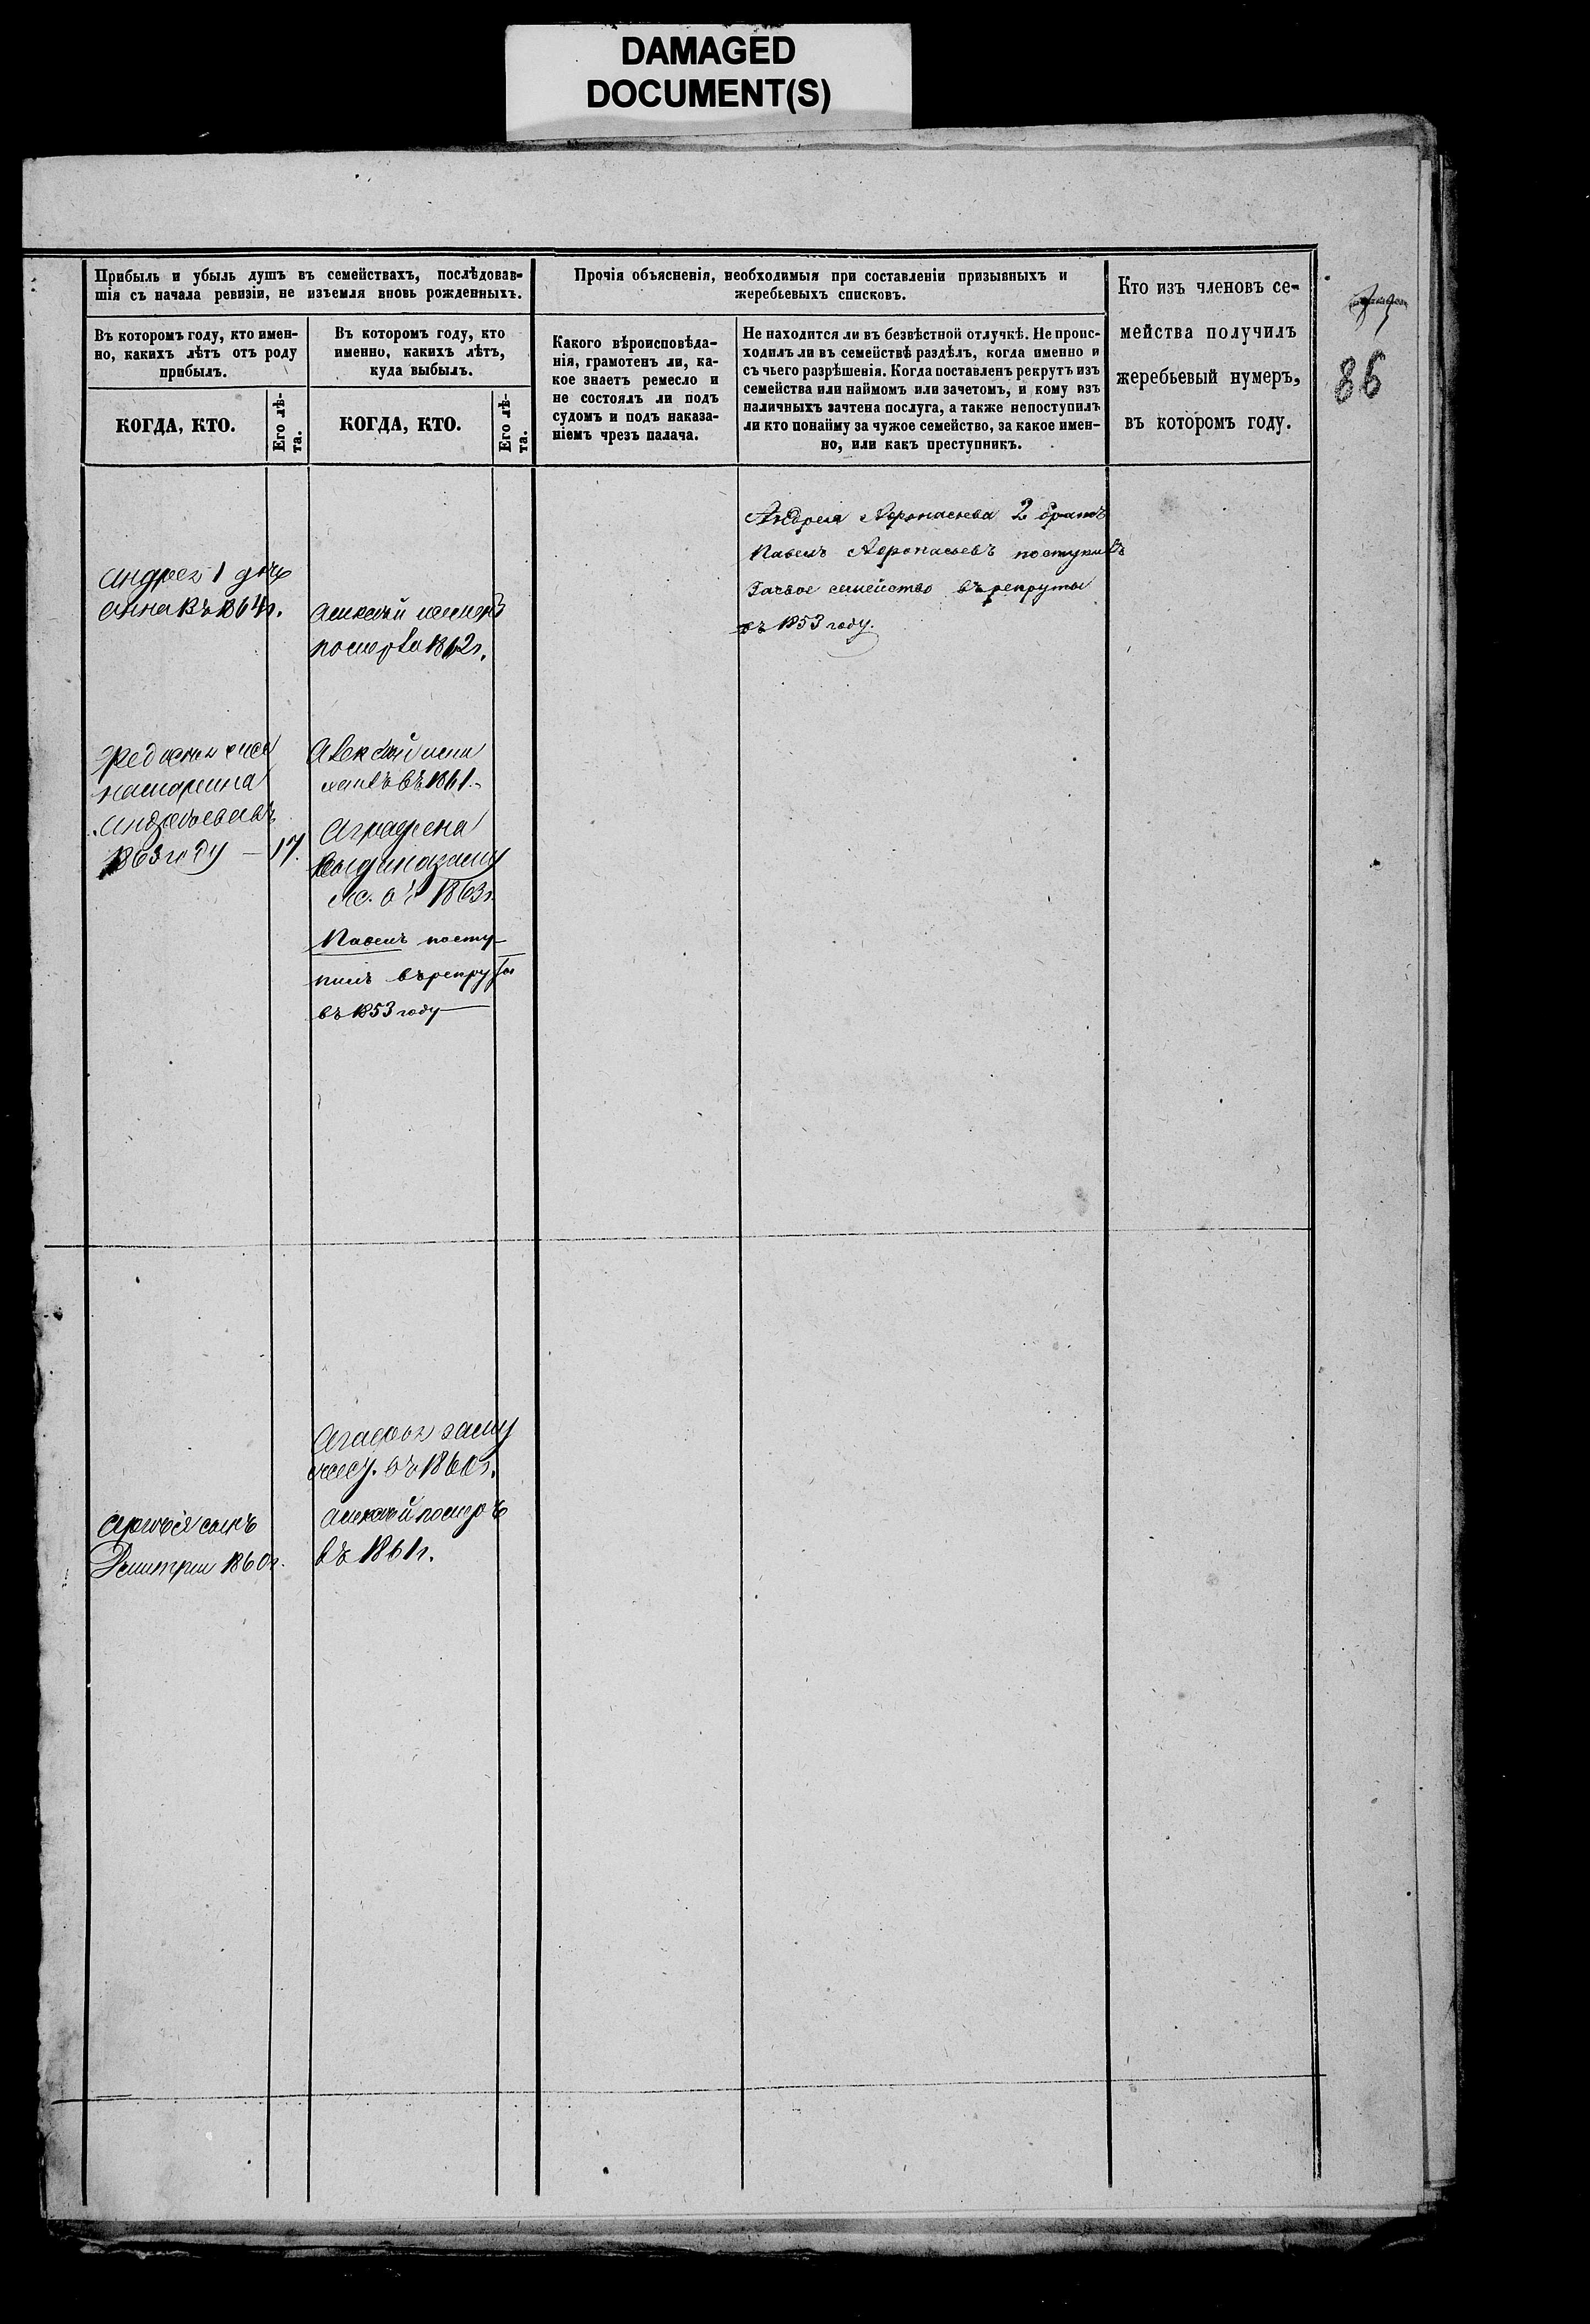 DAMAGED
DOCUMENT(S)
Прибыль и убыль душъ въ семействахъ, послѣдовав-
шія съ начала ревизіи, не изъемля вновь рожденныхъ.
Въ которомъ году, кто имен-
но, какихъ лѣтъ отъ роду
прибылъ.
КОГДА, КТО.
Его лѣ-
та.
Въ которомъ году, кто
именно, какихъ лѣтъ,
куда выбылъ.
КОГДА, КТО.
Его лѣ-
та.
Прочія объясненія, необходимыя при составленіи призывныхъ и
жеребьевыхъ списковъ.
Какого вѣроисповѣда-
нія, грамотенъ ли, ка-
кое знаетъ ремесло и
не состоялъ ли подъ
судомъ и подъ наказа-
ніемъ чрезъ палача.
Не находится ли въ безвѣстной отлучкѣ. Не проис-
ходилъ ли въ семействѣ раздѣлъ, когда именно и
съ чьего разрѣшенія. Когда поставленъ рекрутъ изъ
семейства или наймомъ или зачетомъ, и кому изъ
наличныхъ зачтена послуга, а также непоступилъ
ли кто понайму за чужое семейство, за какое имен-
но, или какъ преступникъ.
Кто изъ членовъ се-
мейства получилъ
жеребьевый нумеръ,
въ которомъ году.
86
Андрея 1 дочь
Анна въ 1864г.
Алексѣй
помер 1862г.
1863 году — 17.
Алексѣй
въ 1861.
Аграфена
1863г.
Павелъ посту-
пилъ въ рекруты
въ 1853 году
Андрея Афонасьева 2 братъ
Павелъ Афонасьевъ поступилъ
семейство въ рекруты
въ 1853 году.
Агафья заму
въ 1860г.
сынъ
Дмитрий 1860г.
Алексѣй померъ
въ 1861г.